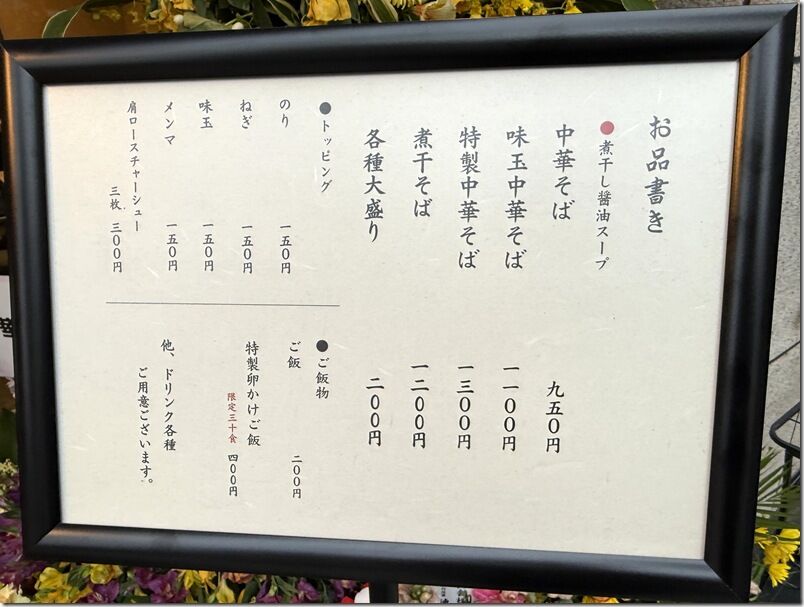 お品書き
●煮干し醤油スープ
中華そば 九五〇円
味玉中華そば 一一〇〇円
特製中華そば 一三〇〇円
煮干そば 一二〇〇円
各種大盛り 二〇〇円
●トッピング
のり 一五〇円
ねぎ 一五〇円
味玉 一五〇円
メンマ 一五〇円
肩ロースチャーシュー
三枚 三〇〇円
●ご飯物
ご飯 二〇〇円
特製卵かけご飯
限定三十食 四〇〇円
他、ドリンク各種
ご用意ございます。